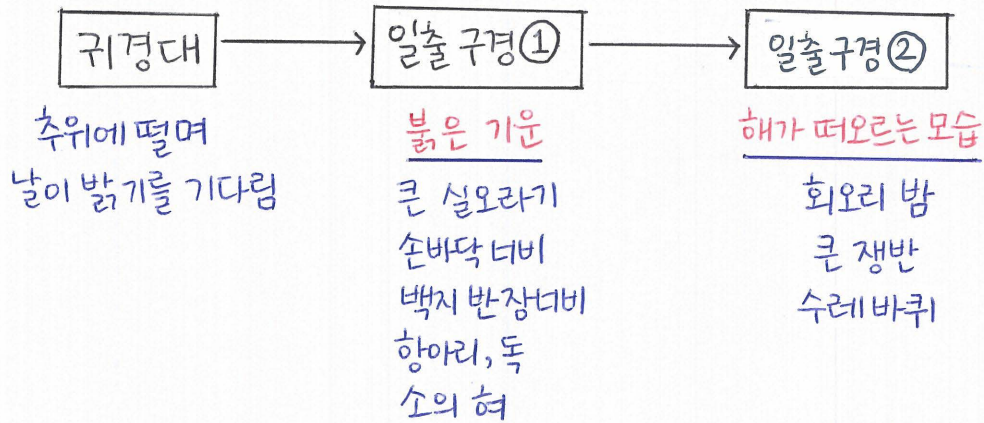 귀경대
일출 구경①
일출구경②
추위에 떨며
날이 밝기를 기다림
붉은 기운
큰 실오라기
손바닥 너비
백지 반장너비
항아리, 독
소의 혀
해가 떠오르는 모습
회오리 밤
큰 쟁반
수레바퀴